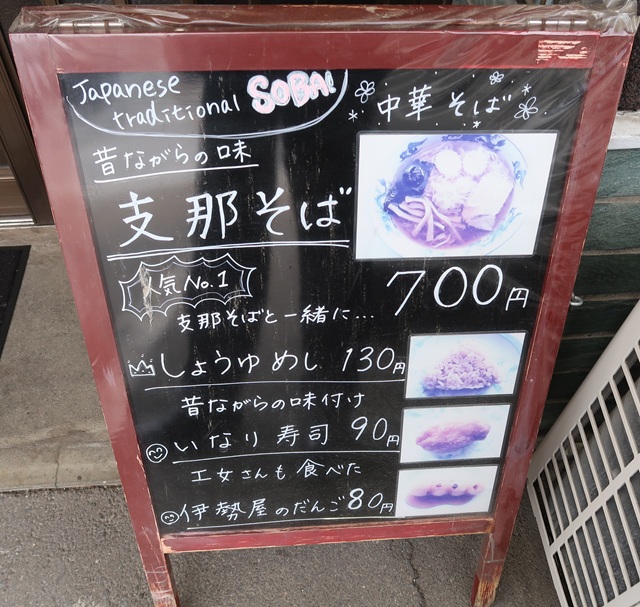 Japanese
traditional SOBA!
中華そば
昔ながらの味
支那そば
人気No.1
700円
支那そばと一緒に...
しょうゆめし 130円
昔ながらの味付け
いなり寿司 90円
工女さんも食べた
伊勢屋のだんご80円